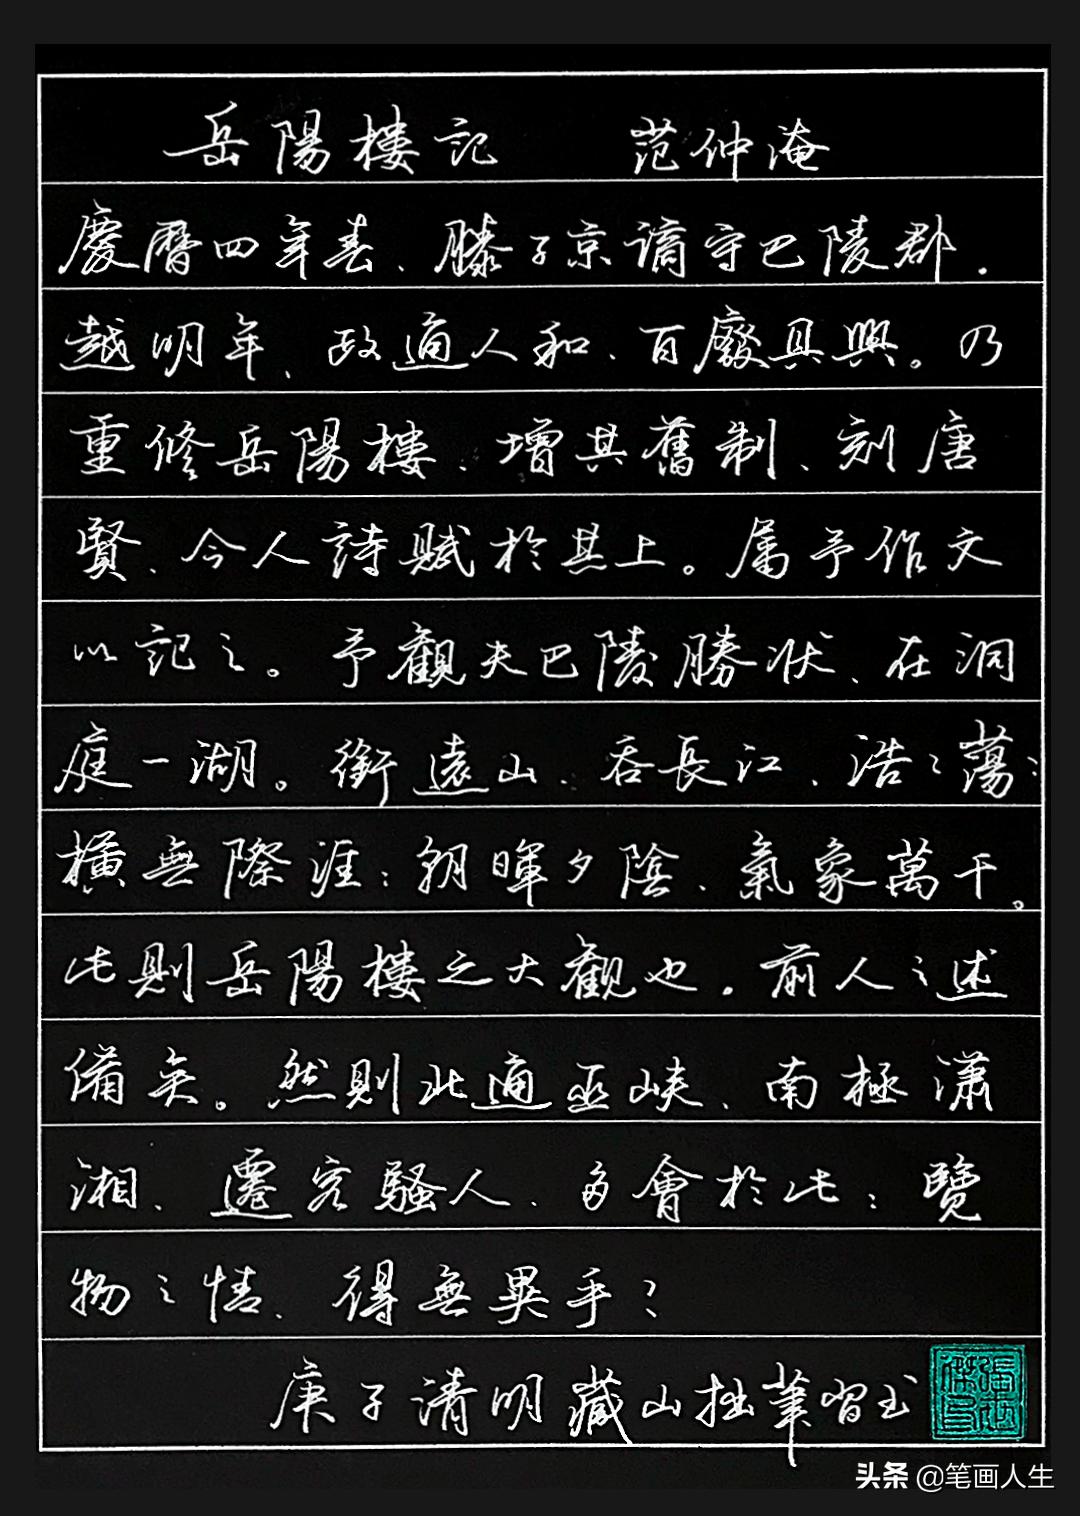 岳陽樓記 范仲淹
慶曆四年春、滕子京謫守巴陵郡.
越明年、政通人和、百廢具興。乃
重修岳陽樓、增其舊制、刻唐
賢、今人詩賦於其上。属予作文
以記之。予觀夫巴陵勝狀、在洞
庭一湖。銜遠山、吞長江、浩々蕩々
橫無際涯；朝暉夕陰、氣象萬千。
此則岳陽樓之大觀也.前人之述
備矣。然則北通巫峽、南極瀟
湘、遷客騷人、多會於此；覽
物之情、得無異乎？
庚子清明藏山拙筆習书
头条 @笔画人生